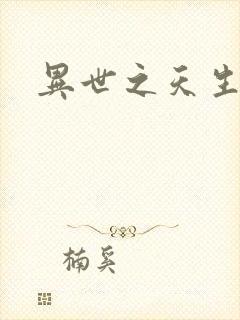 異世之天生
楠奚